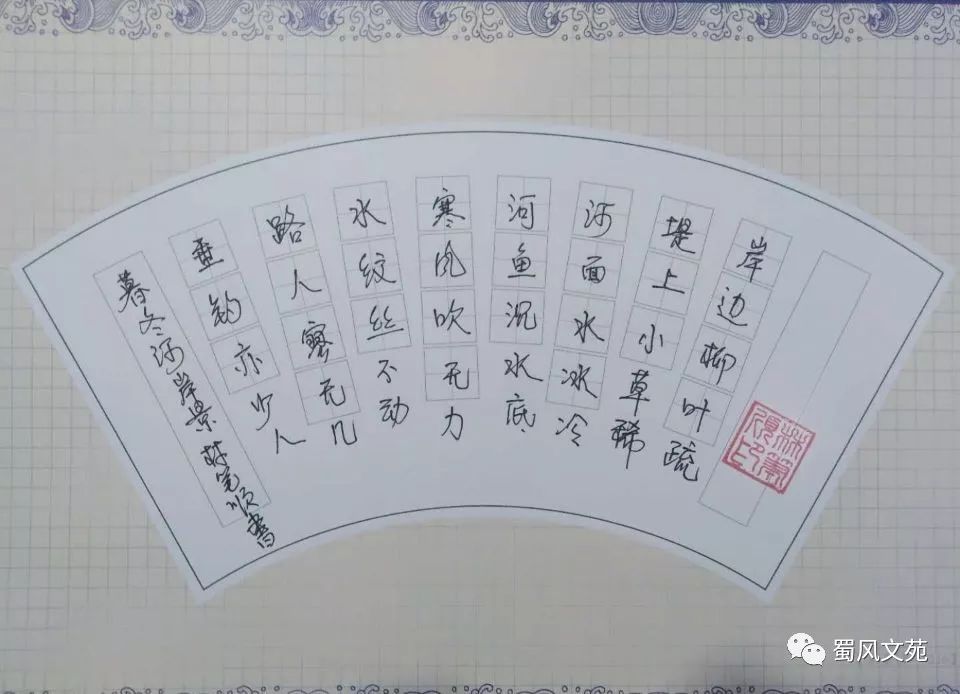 岸边柳叶疏
堤上小草稀
河面水冰冷
河鱼沉水底
寒风吹无力
水纹丝不动
路人寥无几
垂钓亦少人
暮冬河岸景 林笔顺书
林筆順印
蜀风文苑